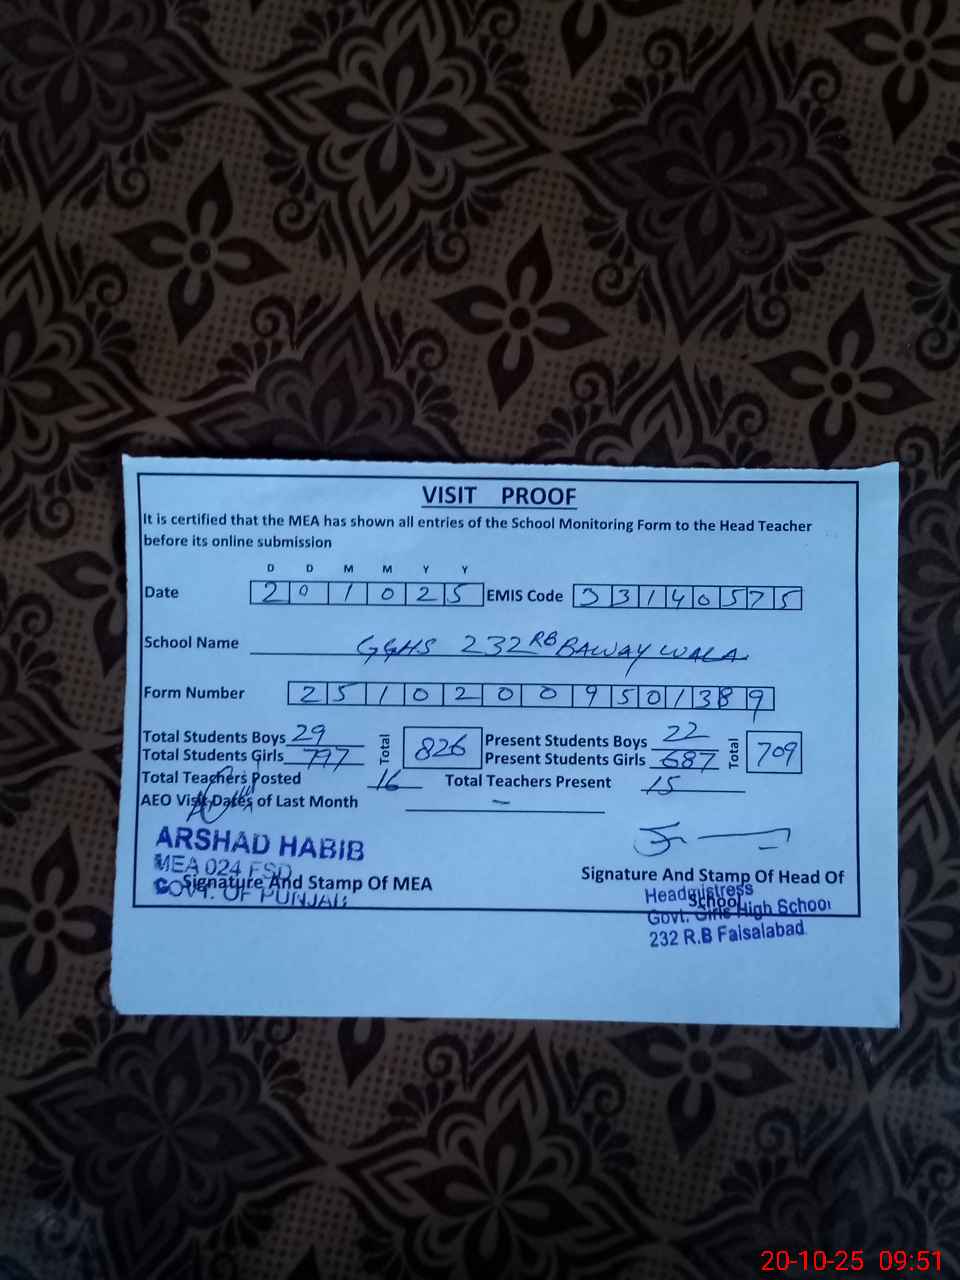 VISIT PROOF
It is certified that the MEA has shown all entries of the School Monitoring Form to the Head Teacher
before its online submission
D D M M Y Y
Date 2 0 1 0 2 5 EMIS Code 3 3 1 4 0 5 7 5
School Name GGHS 232 RB BAWAY WALA
Form Number 2 5 1 0 2 0 0 9 5 0 1 3 8 9
Total Students Boys 29 Total 826 Present Students Boys 22 Total 709
Total Students Girls 797 Present Students Girls 687
Total Teachers Posted 16 Total Teachers Present 15
AEO Visit Dates of Last Month –
ARSHAD HABIB
MEA 024 FSD
GOVT. OF PUNJAB
Signature And Stamp Of MEA
Signature And Stamp Of Head Of
School
Headmistress
Govt. Girls High School
232 R.B Faisalabad
20-10-25 09:51